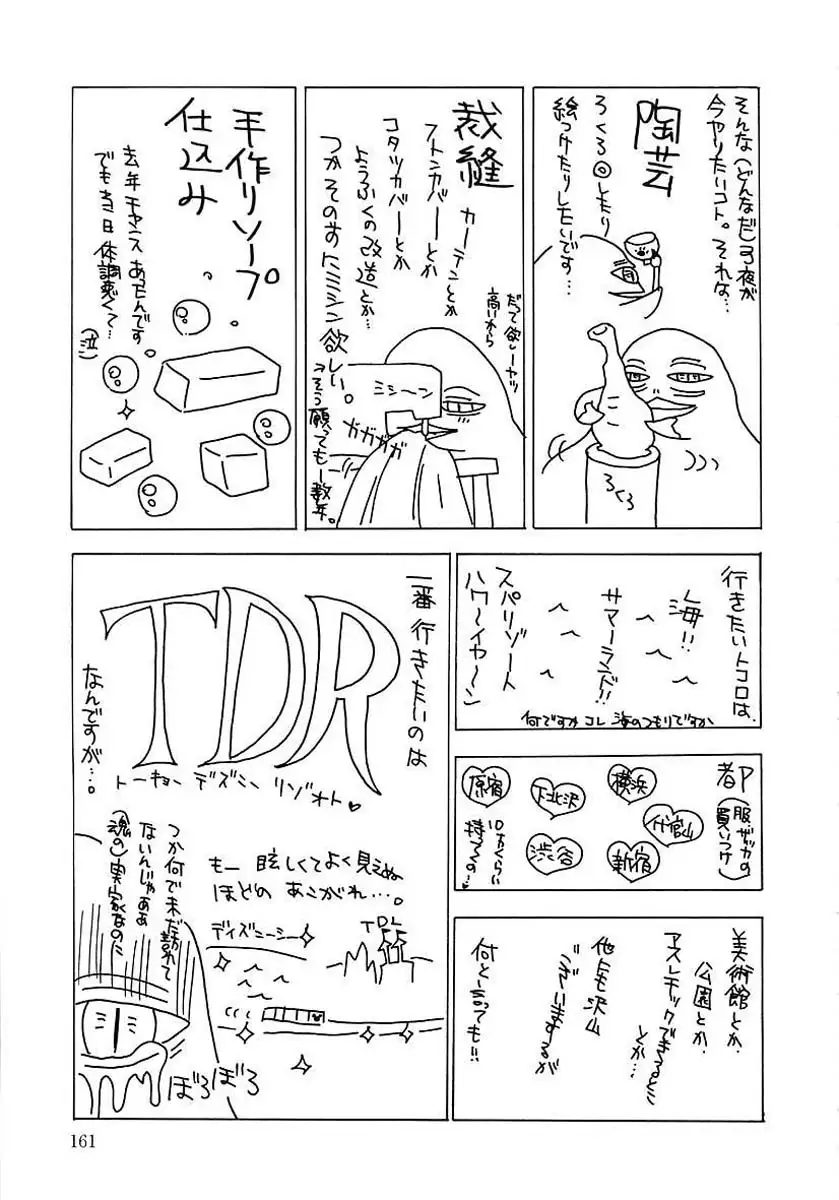 そんな(どんなだ)3夜が
今やりたいコト。それな…
陶芸
ろくろ◎しもり
絵つけたりしたいです…
ろくろ
裁縫
カーテンとか
フトンカバーとか
コタツカバーとか
ようふくの改造とか…
つかそのまえにミシン欲しい。
→そう願っても一数年。
だって欲しーヤツ
高いから
ミシーン
ガガガガ
手作りソープ
仕込み
去年チャンスあったんです
でも当日体調悪くて…
(泣)
行きたいトコロは、
海!!
サマーランド!!
スパリゾート
ハワ〜イヤ〜ン
何ですかコレ 海のつもりですか
都内
(服・ザッカの
買いつけ)
原宿
下北沢
横浜
代官山
渋谷
新宿
10万くらい
持ってくの…
美術館とか、
公園とか、
アスレチックできるとこ
とか…
他にも沢山
ございまするが
何と言っても!!
一番行きたいのは
TDR
トーキョー デズニー リゾオト♥
なんですが…。
もー眩しくてよく見えぬ
ほどの あこがれ…。
ディズニーシー
TDL
つか何で未だ訪れて
ないんじゃああ
(魂の)実家なのに
ぼろぼろ
161